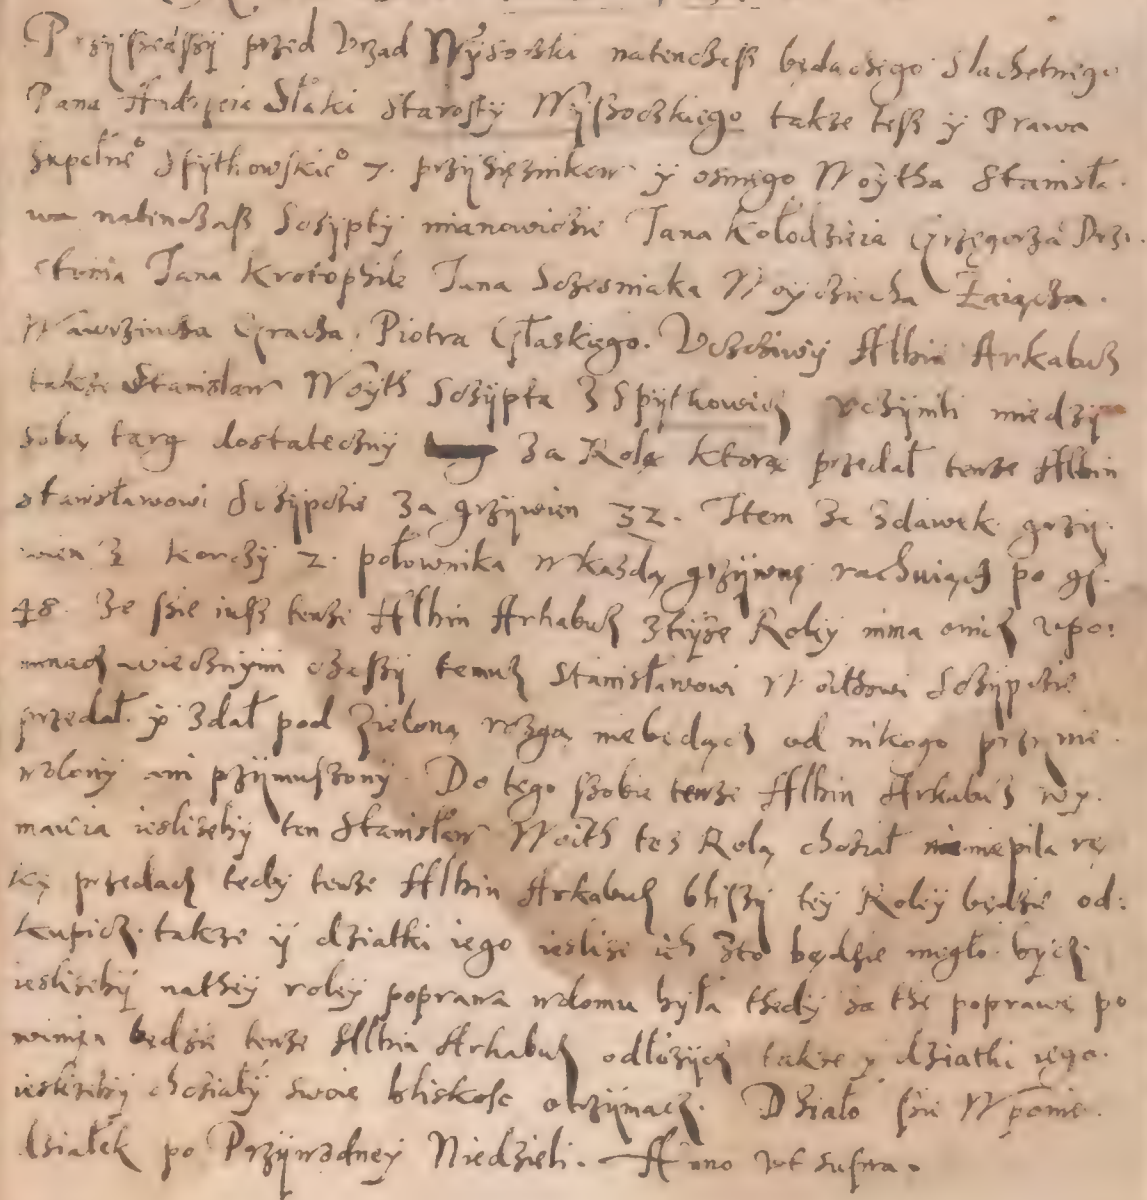 Przyszedszy przed Vrząd Wysoczki natenczass będączego slachetnego
Pana Andrzeia Słaki starosty Wyssoczkiego takze tess y Prawa
zupełne° Spytkowskie° 7. przysięznikow y osmego Woÿtha Stanisła.
wa natenczass Sczypty mianowiczie Jana Kołodzieia Grzęgorza
Jana Krotophile Jana Sczesniaka Woyciecha Zaiącza.
Wawrzincza Gracza. Piotra Głaskiego. Vczcziwy Albin Arkabuz
takze Stanisław Woÿth Sczypta z Spytkowicz vczynili miedzy
sobą targ dostateczny za Rolą ktorą przedał tenze Albin
Stanisławowi Sczypczie za grzywien 32. Item za zdawek grzy.
wien ½ korczy 2. połownika w kazdą grzywnę rachuiącz po gr.
48. Ze sie iusz tenze Albin Arkabuz z teyze Roley mma onich vpo:
mnacz wiecznymi czassy temuz Stanisławowi Woithowi Sczypczie
przedał y zdał pod zieloną rozgą niebędącz od nikogo przynie.
wolony ani przymuszony. Do tego szobie tenze Albin Arkabuz wy.
mawia ieslizeby ten Stanisław Woith tes Rolą chcział niemiepila rę
ky przedacz tedy tenze Albin Arkabuz bliszy tey Roley będzie od:
kupicz. takze y dziatki iego ieslize ich sto będzie mięgło bycz
iesliseby nathey roley poprawa wdomu była thedy za the poprawę po
winien będzie tenze Albin Arkabuz odłozycz takze y dziatki iego.
iesliseby chcziały swoie bliskosc otrzymacz. Działo sie W ponie.
działek po Przywodney Niedzieli. Anno vt supra.